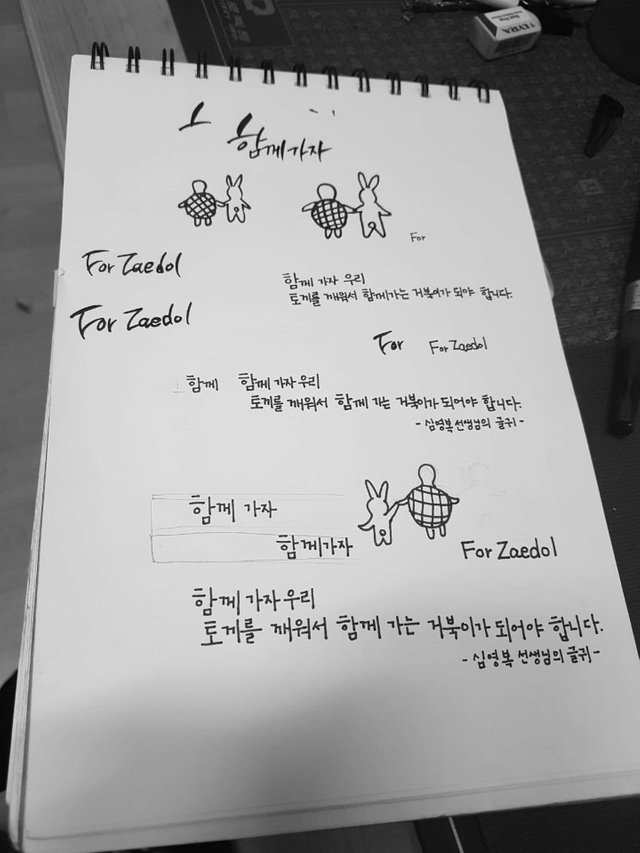 함께가자
For
For Zaedol
함께 가자 우리
토끼를 깨워서 함께가는 거북이가 되어야 합니다.
For Zaedol
For
For Zaedol
함께
함께 가자 우리
토끼를 깨워서 함께 가는 거북이가 되어야 합니다.
- 심영복 선생님의 글귀 -
함께 가자
함께가자
For Zaedol
함께 가자 우리
토끼를 깨워서 함께 가는 거북이가 되어야 합니다.
- 심영복 선생님의 글귀 -